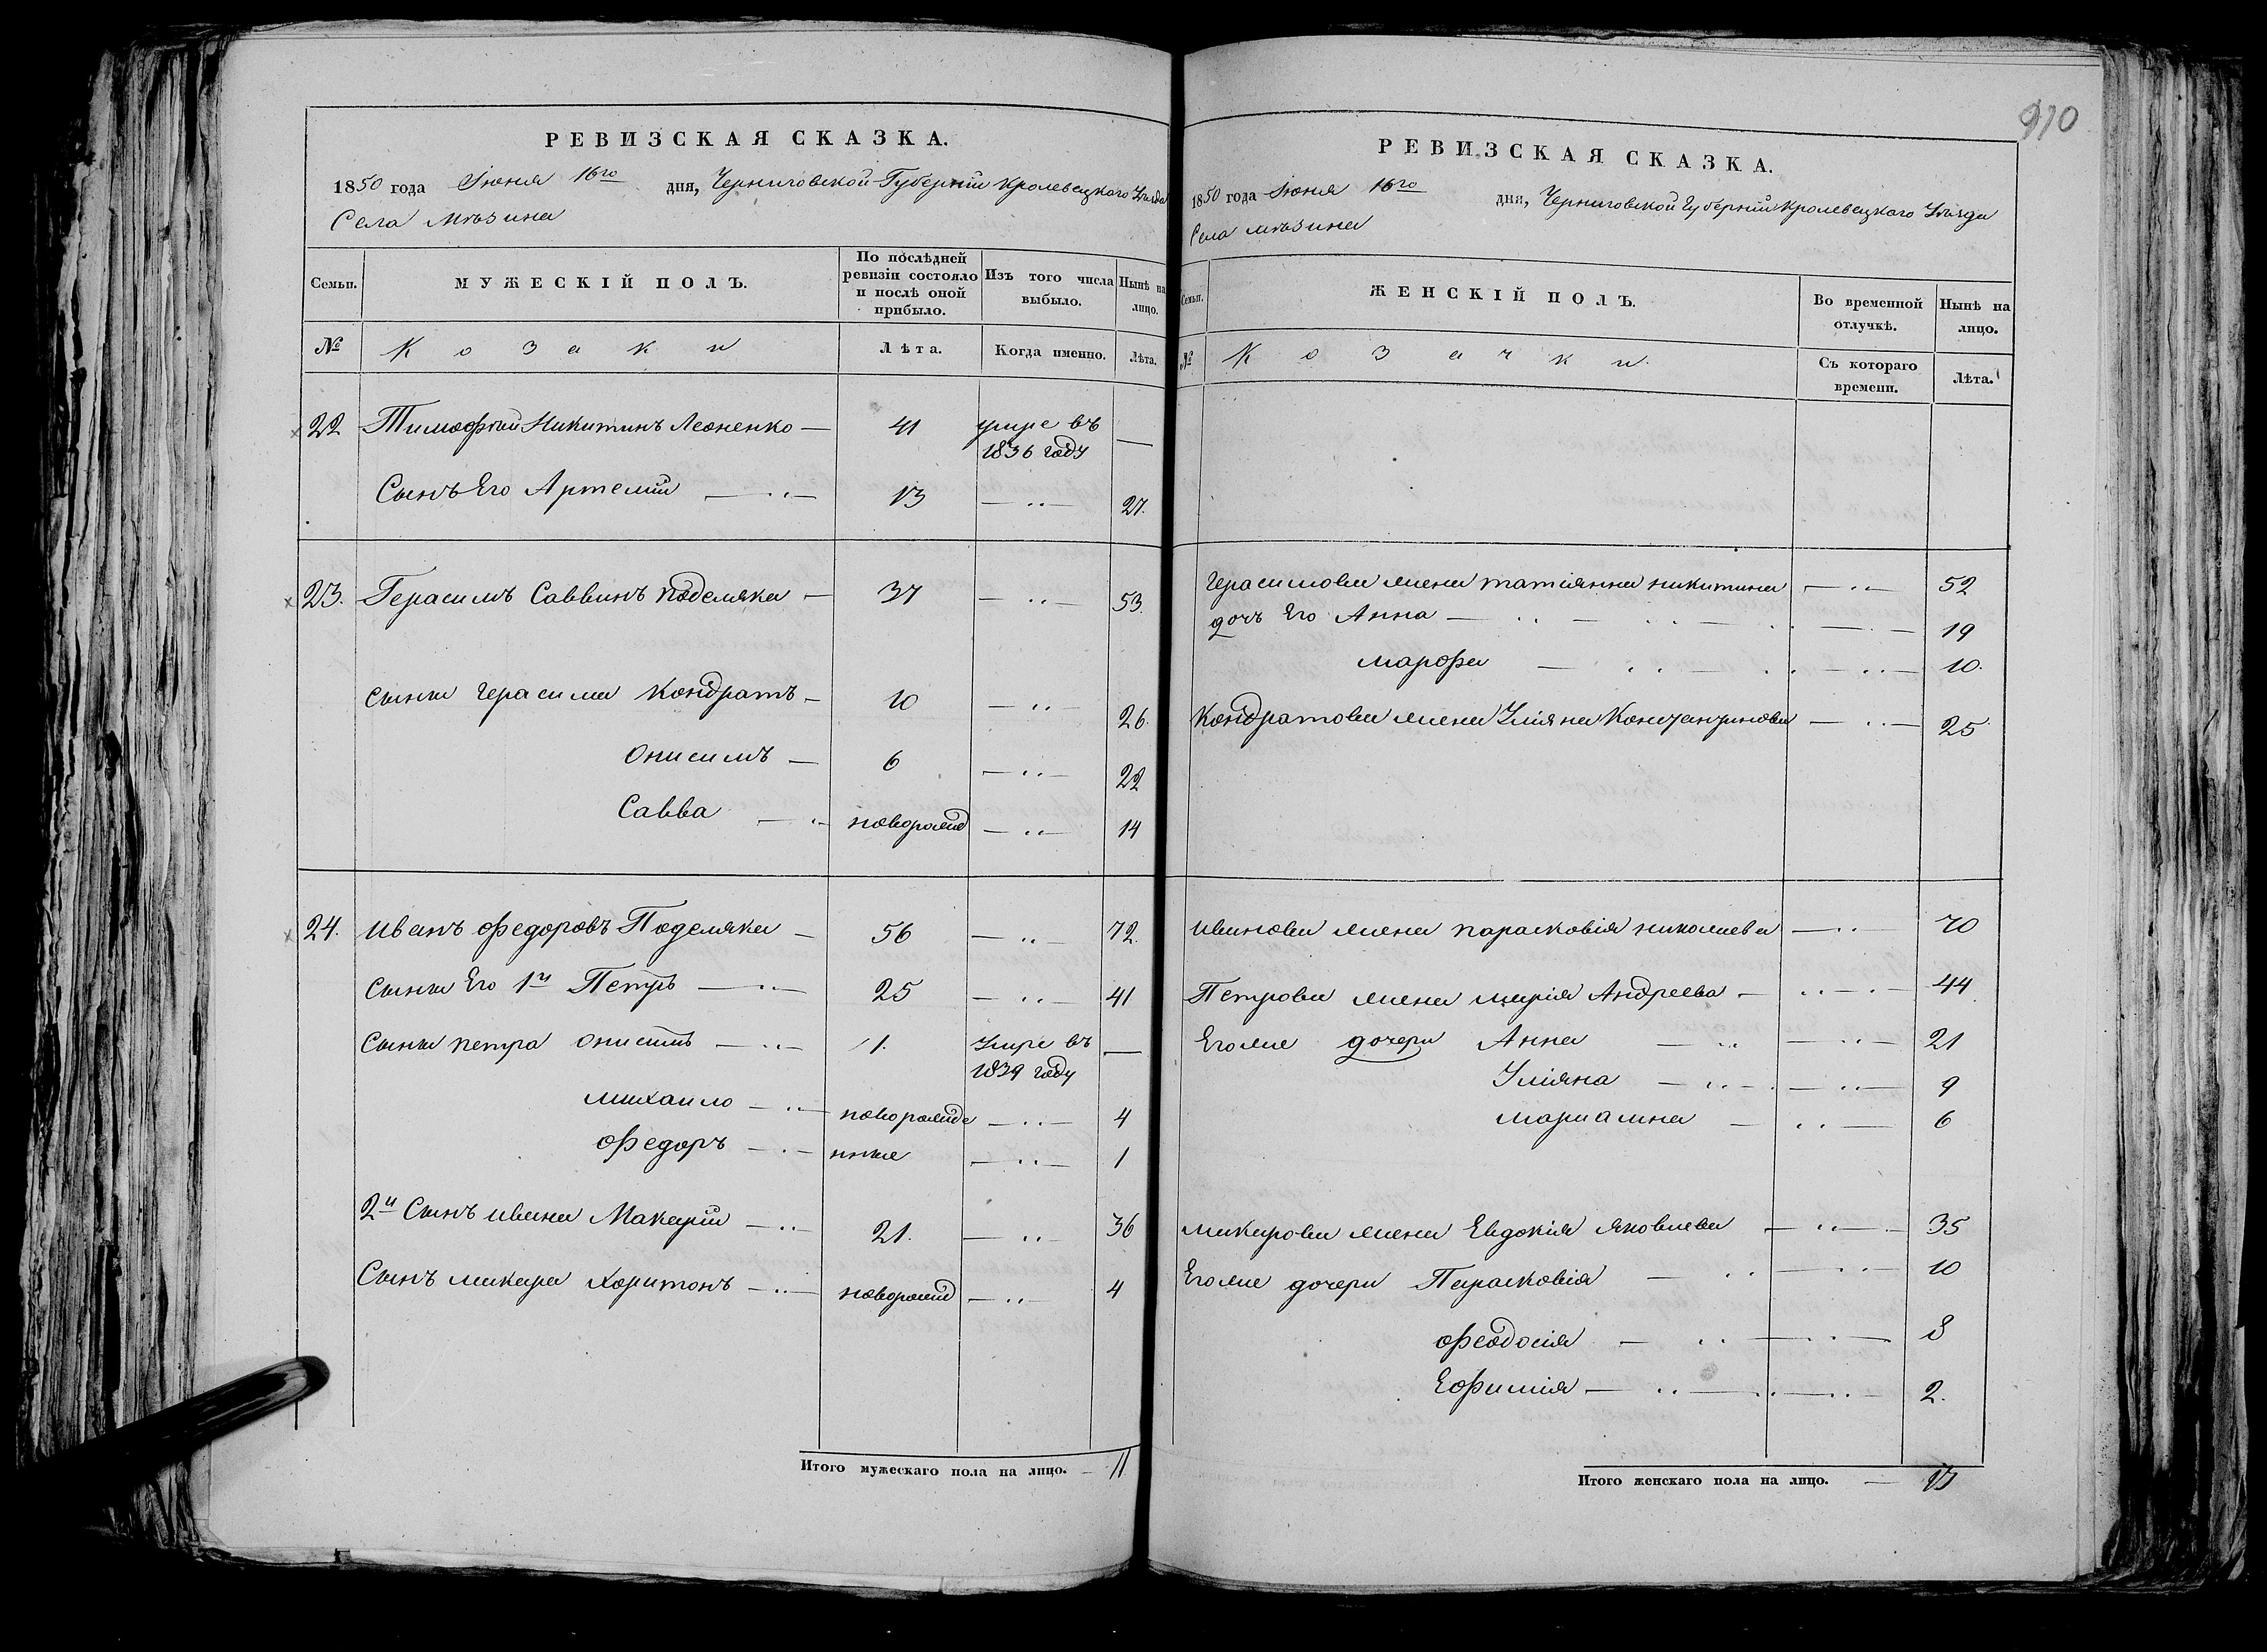 РЕВИЗСКАЯ СКАЗКА.
1850 года Июня 16го дня, Черниговской Губерніи Кролевецкаго Уезда
Села Мезина
Семьи. МУЖЕСКІЙ ПОЛЪ. По послѣдней ревизіи состояло и послѣ оной прибыло. Изъ того числа выбыло. Нынѣ на лицо.
№ Козаки Лѣта. Когда именно. Лѣта.
22 Тимофей Никитинъ Леоненко — 41 умре въ 1836 году —
Сынъ Его Артемій 13 — 27.
23. Герасимъ Саввинъ Подемяка — 37 — 53.
Сыны Герасима Кондратъ — 10 — 26.
Онисимъ — 6 — 22
Савва — новорожд — 14
24. Иванъ Федоровъ Подемяка — 56 — 72.
Сыны Его 1й Петръ — 25 — 41
Сыны Петра Онисимъ — 1. умре въ 1839 году —
Михайло — новорожде — 4
Федоръ — ниже — 1
2й Сынъ Ивана Макарій — 21. — 36
Сынъ Макара Харитонъ — новорожд — 4
Итого мужескаго пола на лицо. — 11
910
РЕВИЗСКАЯ СКАЗКА.
1850 года Июня 16го дня, Черниговской Губерніи Кролевецкаго Уезда
Села Мезина
Семьи. ЖЕНСКІЙ ПОЛЪ. Во временной отлучкѣ. Нынѣ на лицо.
№ Козачки. Съ котораго времени. Лѣта.
Герасимова жена Татіянна Никитина — 52
дочь Его Анна — 19
Марфа — 10.
Кондратова жена Уліяна Константинова — 25
Иванова жена Парасковія Николаева — 70
Петрова жена Марія Андреева — 44
Его же дочери Анна — 21
Уліяна — 9
Мариамна — 6
Макарова жена Евдокія Яковлева — 35
Его же дочери Парасковія — 10
Феодосія — 8
Ефимія — 2.
Итого женскаго пола на лицо. — 13